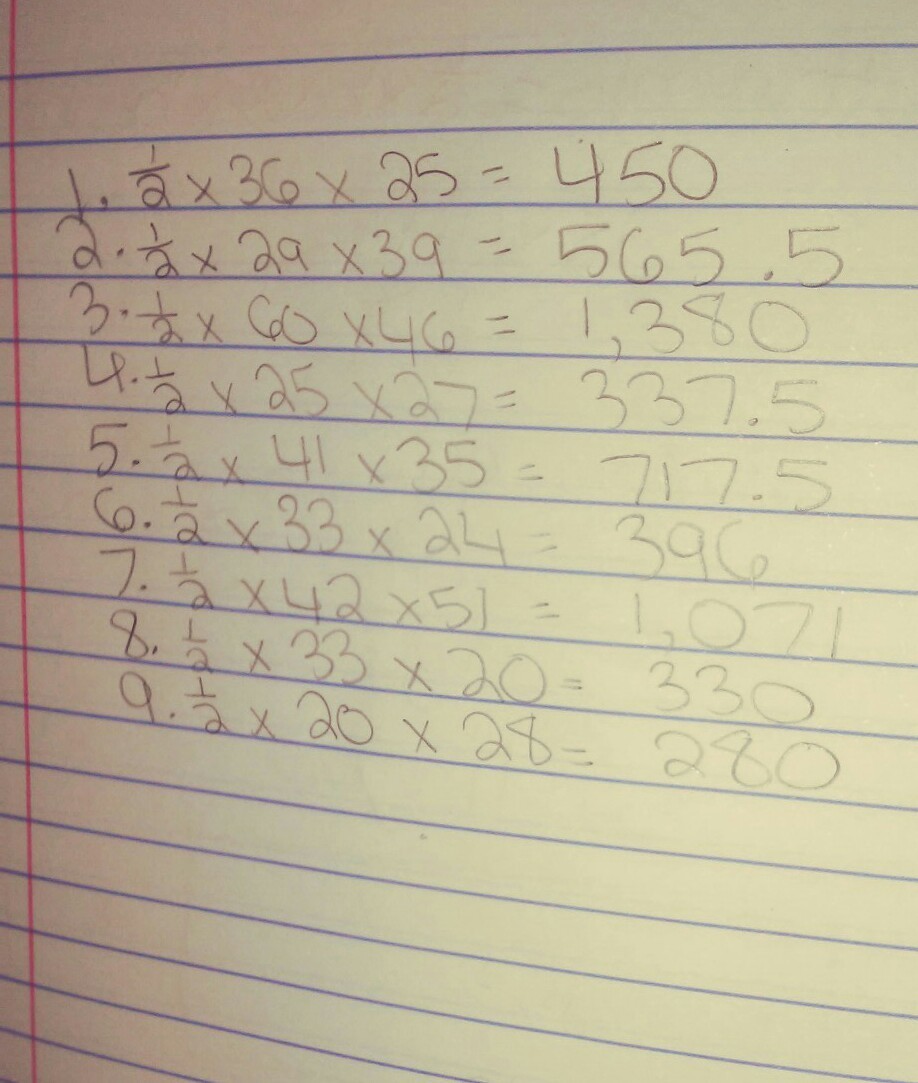 1. 1/2 x 36 x 25 = 450
2. 1/2 x 29 x 39 = 565.5
3. 1/2 x 60 x 46 = 1,380
4. 1/2 x 25 x 27 = 337.5
5. 1/2 x 41 x 35 = 717.5
6. 1/2 x 33 x 24 = 396
7. 1/2 x 42 x 51 = 1,071
8. 1/2 x 33 x 20 = 330
9. 1/2 x 20 x 28 = 280